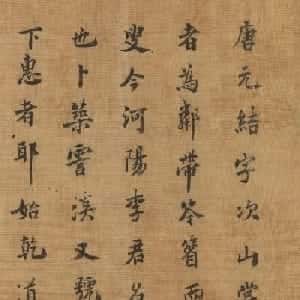 唐元結字次山嘗
者為鄰帶笭箵而
叟今河陽李君名
也卜築霅溪又號
下惠者耶始乾道